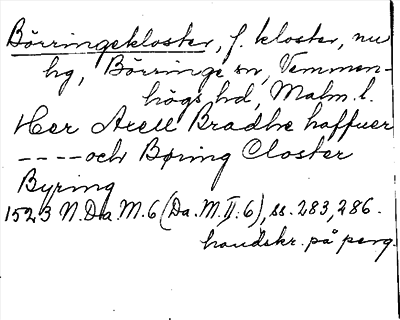 Börringekloster, f. kloster, nu
hg, Börringe sn, Vemmen-
högs hd, Malm. l.
Her Axell Bradhe haffuer
----och Børing Closter
Byring
1523 N.Da.M.6 (Da.M.II.6), ss. 283, 286.
handskr. på perg.